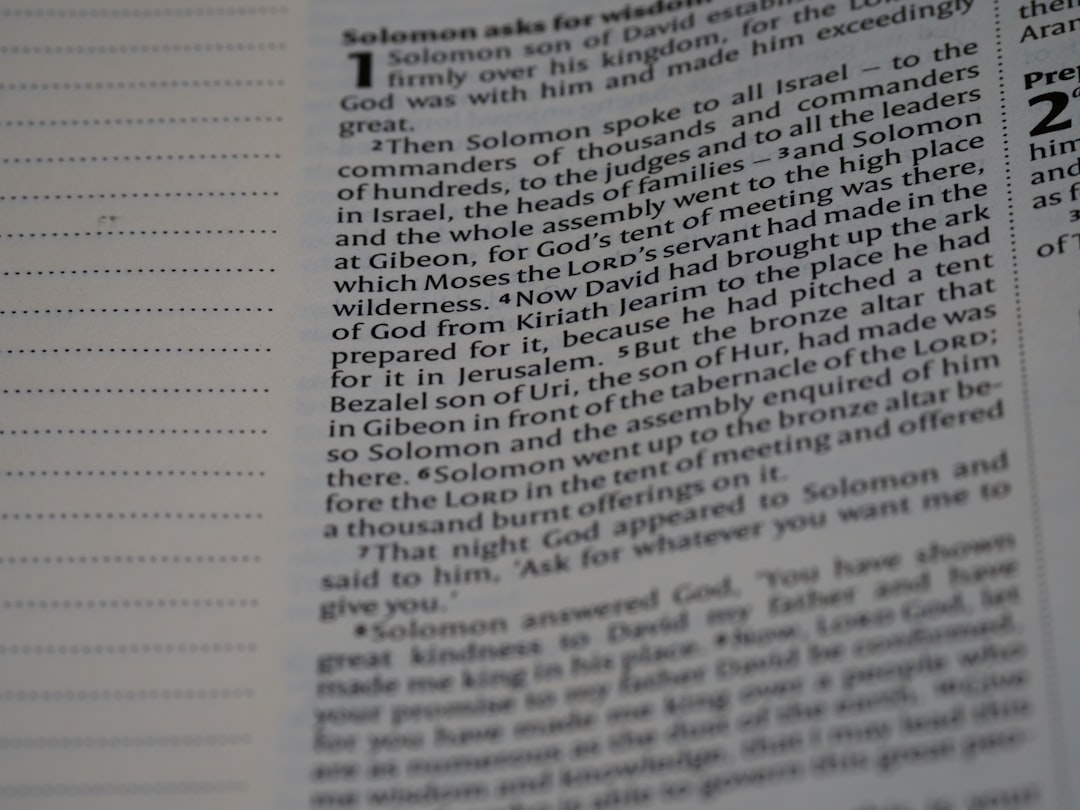 Solomon asks for wisdom
1 Solomon son of David
firmly over his kingdom, for the LORD
God was with him and made him exceedingly
great.
2 Then Solomon spoke to all Israel – to the
commanders of thousands and commanders
of hundreds, to the judges and to all the leaders
in Israel, the heads of families – 3 and Solomon
and the whole assembly went to the high place
at Gibeon, for God's tent of meeting was there,
which Moses the LORD's servant had made in the
wilderness. 4 Now David had brought up the ark
of God from Kiriath Jearim to the place he had
prepared for it, because he had pitched a tent
for it in Jerusalem. 5 But the bronze altar that
Bezalel son of Uri, the son of Hur, had made was
in Gibeon in front of the tabernacle of the LORD;
so Solomon and the assembly enquired of him
there. 6 Solomon went up to the bronze altar be-
fore the LORD in the tent of meeting and offered
a thousand burnt offerings on it.
7 That night God appeared to Solomon and
said to him, 'Ask for whatever you want me to
give you.'
8 Solomon answered God, 'You have shown
great kindness to David my father and have
made me king in his place. 9 Now, LORD God, let
your promise to my father David be confirmed,
for you have made me king over a people who
are as numerous as the dust of the earth. 10 Give
me wisdom and knowledge, that I may lead this
able to govern this great peo-
2
him
and
as f
3
of T